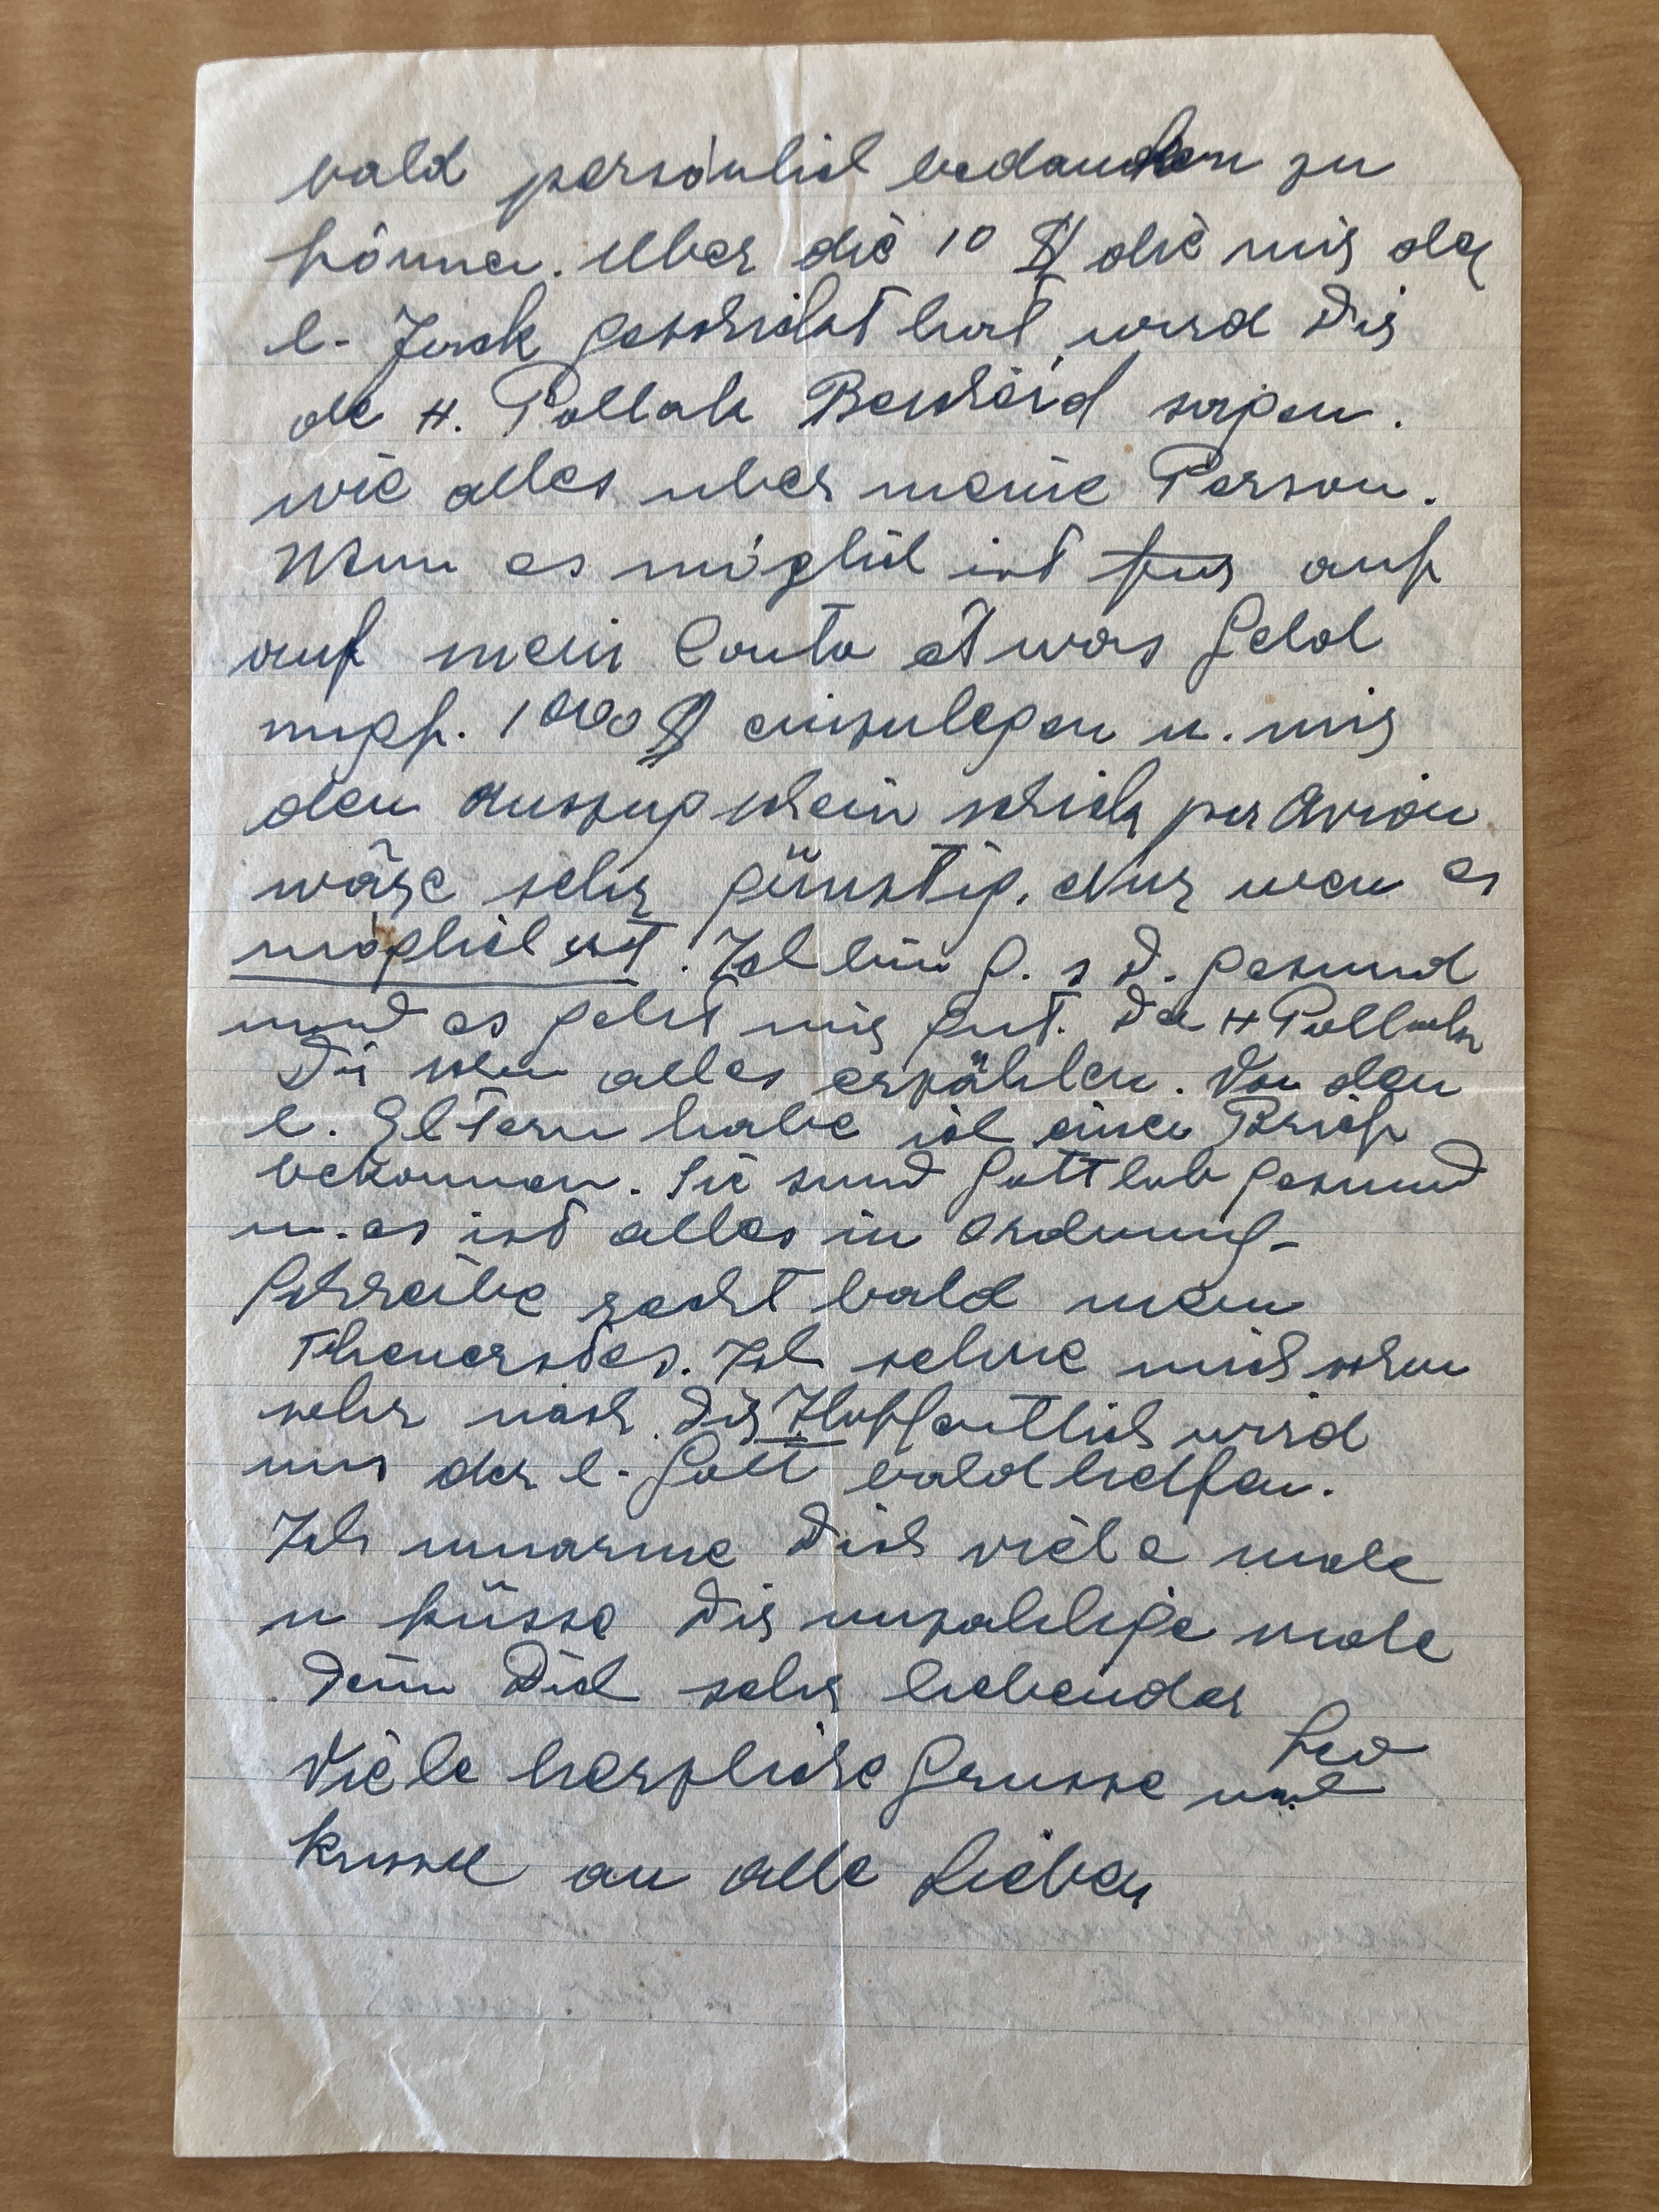 bald persönlich bedanken zu
können. Über die 10 $ die mir der
l. Jack geschickt hat wird Dir
de H. Pollak Bescheid sagen.
wie alles uber meine Person.
Wenn es möglich ist fur auf
auf mein Conto etwas Geld
1000 $ einzulegen u. mir
den Auszugschein schick per Avion
wäre sehr günstig. Nur wen es
möglich ist. Ich bin G. s D. gesund
und es geht mir gut. Der H Pollak
Dir schon alles erzählen. Von den
l. Eltern habe ich einen Brief
bekommen. Sie sind Gottlob gesund
u. es ist alles in Ordnung-
Schreibe recht bald mein
Theuerstes. Ich sehne mich schon
sehr nach Dir Hoffentlich wird
uns der l. Gott bald helfen.
Ich umarme Dich viele male
u küsse Dir unzahlige male
Dein Dich sehr liebender
Leo
Viele herzliche Grusse und
Kusse an alle Lieben